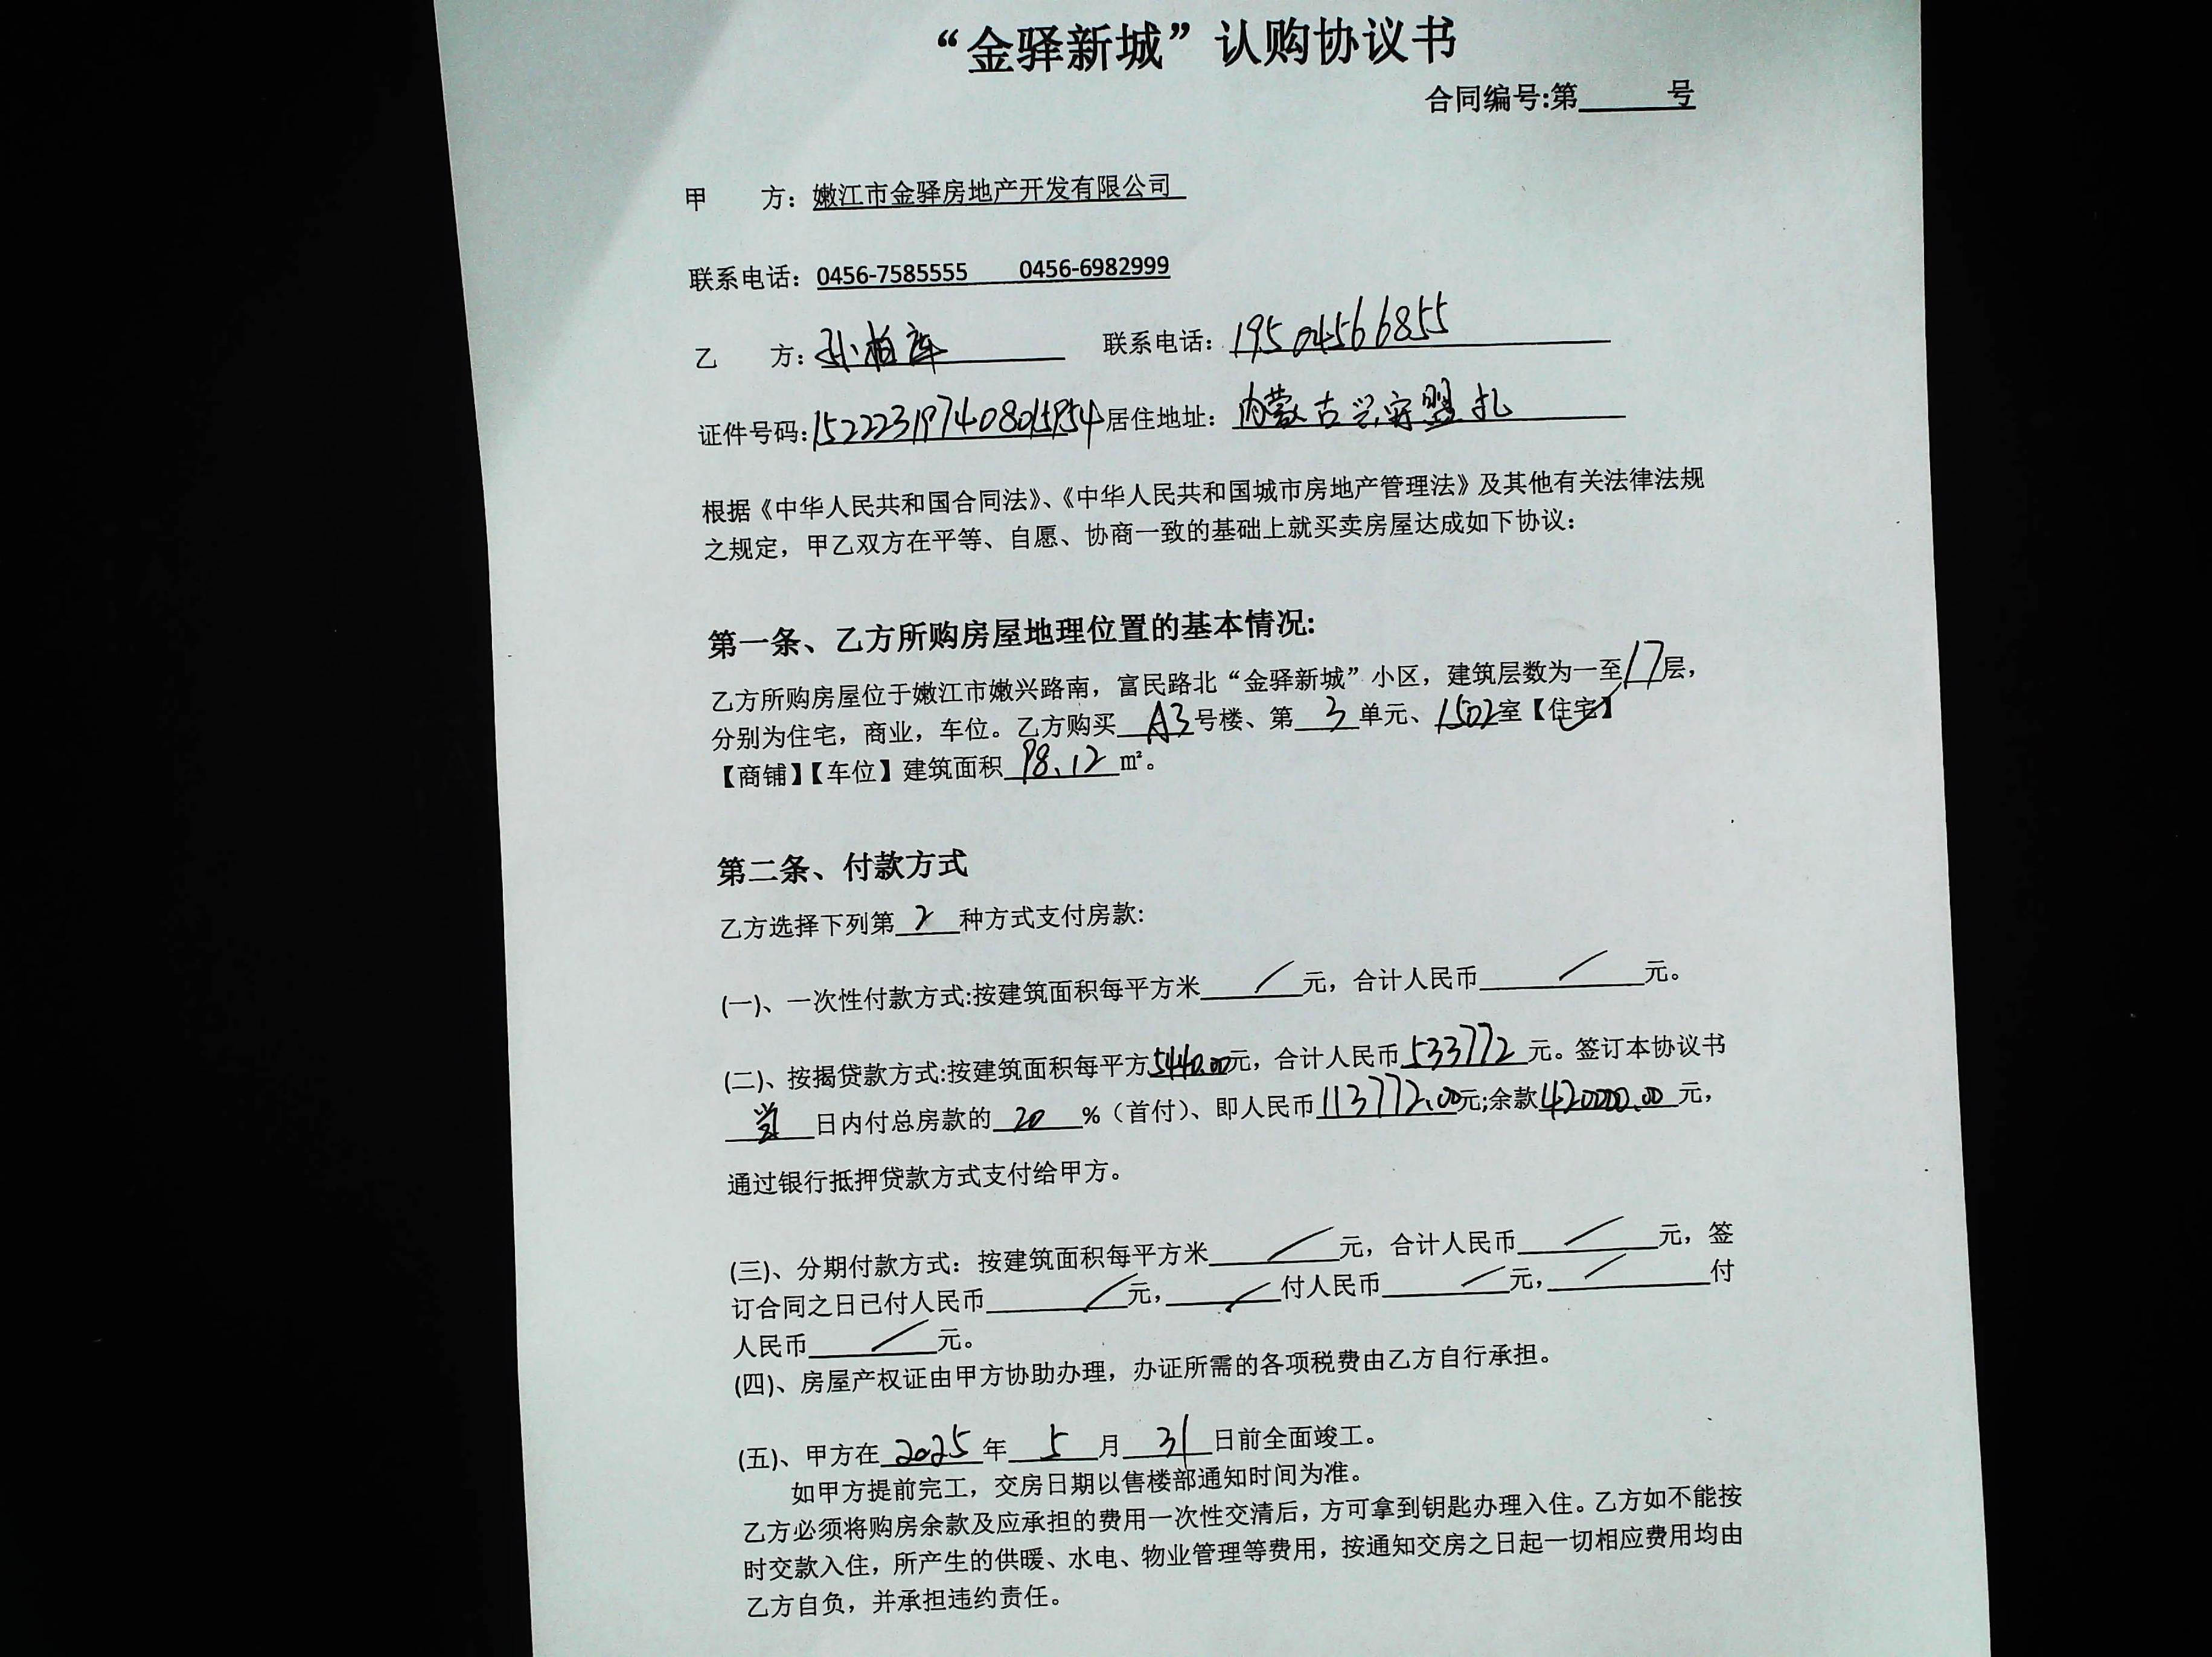 “金驿新城”认购协议书
合同编号:第______号
甲　　方：嫩江市金驿房地产开发有限公司
联系电话：0456-7585555　　0456-6982999
乙　　方：孙柏库　　联系电话：19504566855
证件号码：居住地址：内蒙古兴安盟扎
根据《中华人民共和国合同法》、《中华人民共和国城市房地产管理法》及其他有关法律法规
之规定，甲乙双方在平等、自愿、协商一致的基础上就买卖房屋达成如下协议：
第一条、乙方所购房屋地理位置的基本情况:
乙方所购房屋位于嫩江市嫩兴路南，富民路北“金驿新城”小区，建筑层数为一至17层，
分别为住宅，商业，车位。乙方购买 A3 号楼、第 3 单元、1502室【住宅】
【商铺】【车位】建筑面积 98.12 ㎡。
第二条、付款方式
乙方选择下列第 2 种方式支付房款:
(一)、一次性付款方式:按建筑面积每平方米 / 元，合计人民币 / 元。
(二)、按揭贷款方式:按建筑面积每平方5440.00元，合计人民币 533772 元。签订本协议书
当 日内付总房款的 20 %（首付）、即人民币113772.00元;余款420000.00 元，
通过银行抵押贷款方式支付给甲方。
(三)、分期付款方式：按建筑面积每平方米 / 元，合计人民币 / 元，签
订合同之日已付人民币 / 元， / 付人民币 / 元， / 付
人民币 / 元。
(四)、房屋产权证由甲方协助办理，办证所需的各项税费由乙方自行承担。
(五)、甲方在 2025 年 5 月 31 日前全面竣工。
如甲方提前完工，交房日期以售楼部通知时间为准。
乙方必须将购房余款及应承担的费用一次性交清后，方可拿到钥匙办理入住。乙方如不能按
时交款入住，所产生的供暖、水电、物业管理等费用，按通知交房之日起一切相应费用均由
乙方自负，并承担违约责任。